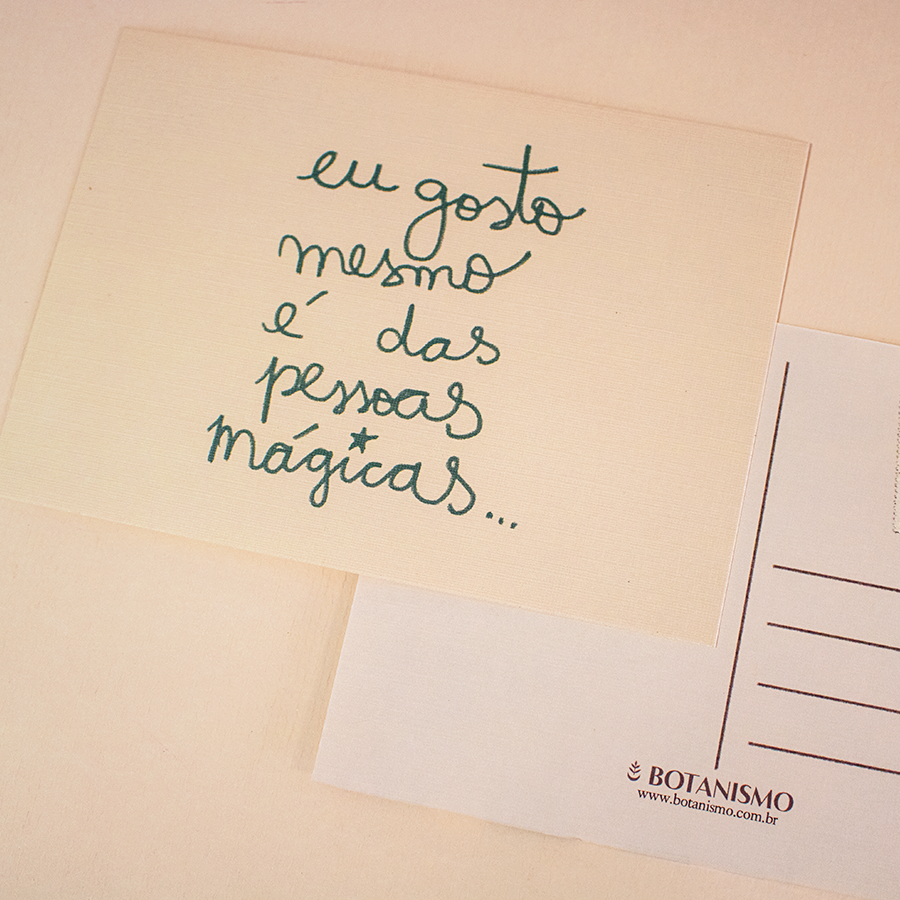 eu gosto
mesmo
é das
pessoas
mágicas...
BOTANISMO
www.botanismo.com.br